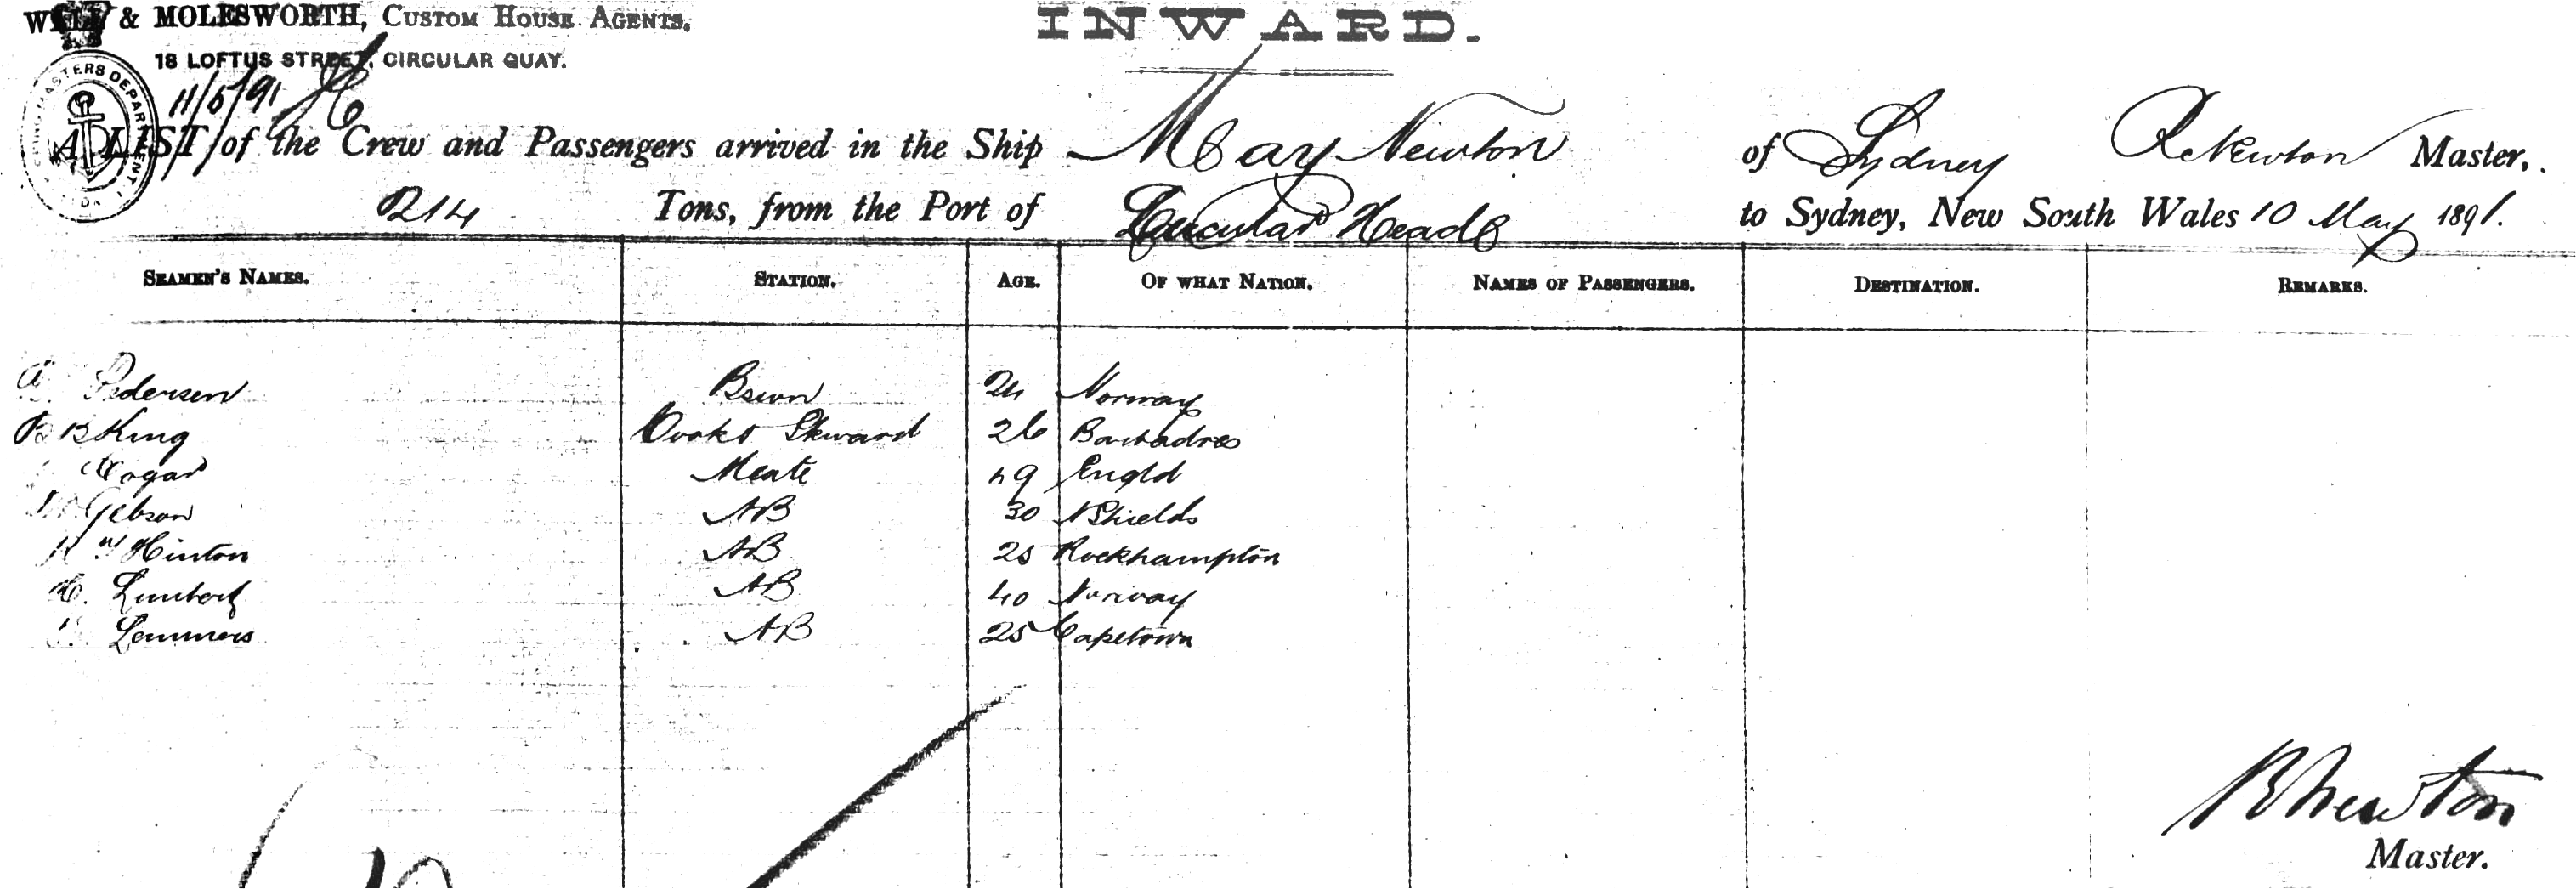 & MOLESWORTH, CUSTOM HOUSE AGENTS,
18 LOFTUS STREET, CIRCULAR QUAY.
INWARD.
11/5/91
A LIST of the Crew and Passengers arrived in the Ship May Newton of Sydney R Newton Master,
214 Tons, from the Port of Circular Head to Sydney, New South Wales 10 May 1891.
SEAMEN'S NAMES. STATION. AGE. OF WHAT NATION. NAMES OF PASSENGERS. DESTINATION. REMARKS.
A Pedersen Bswn 24 Norway
B King Cook & Steward 26 Barbadoes
Mate 49 Engld
Gibson AB 30 N Shields
R W Hinton AB 25 Rockhampton
AB 40 Norway
Lemmers AB 25 Capetown
R Newton
Master.